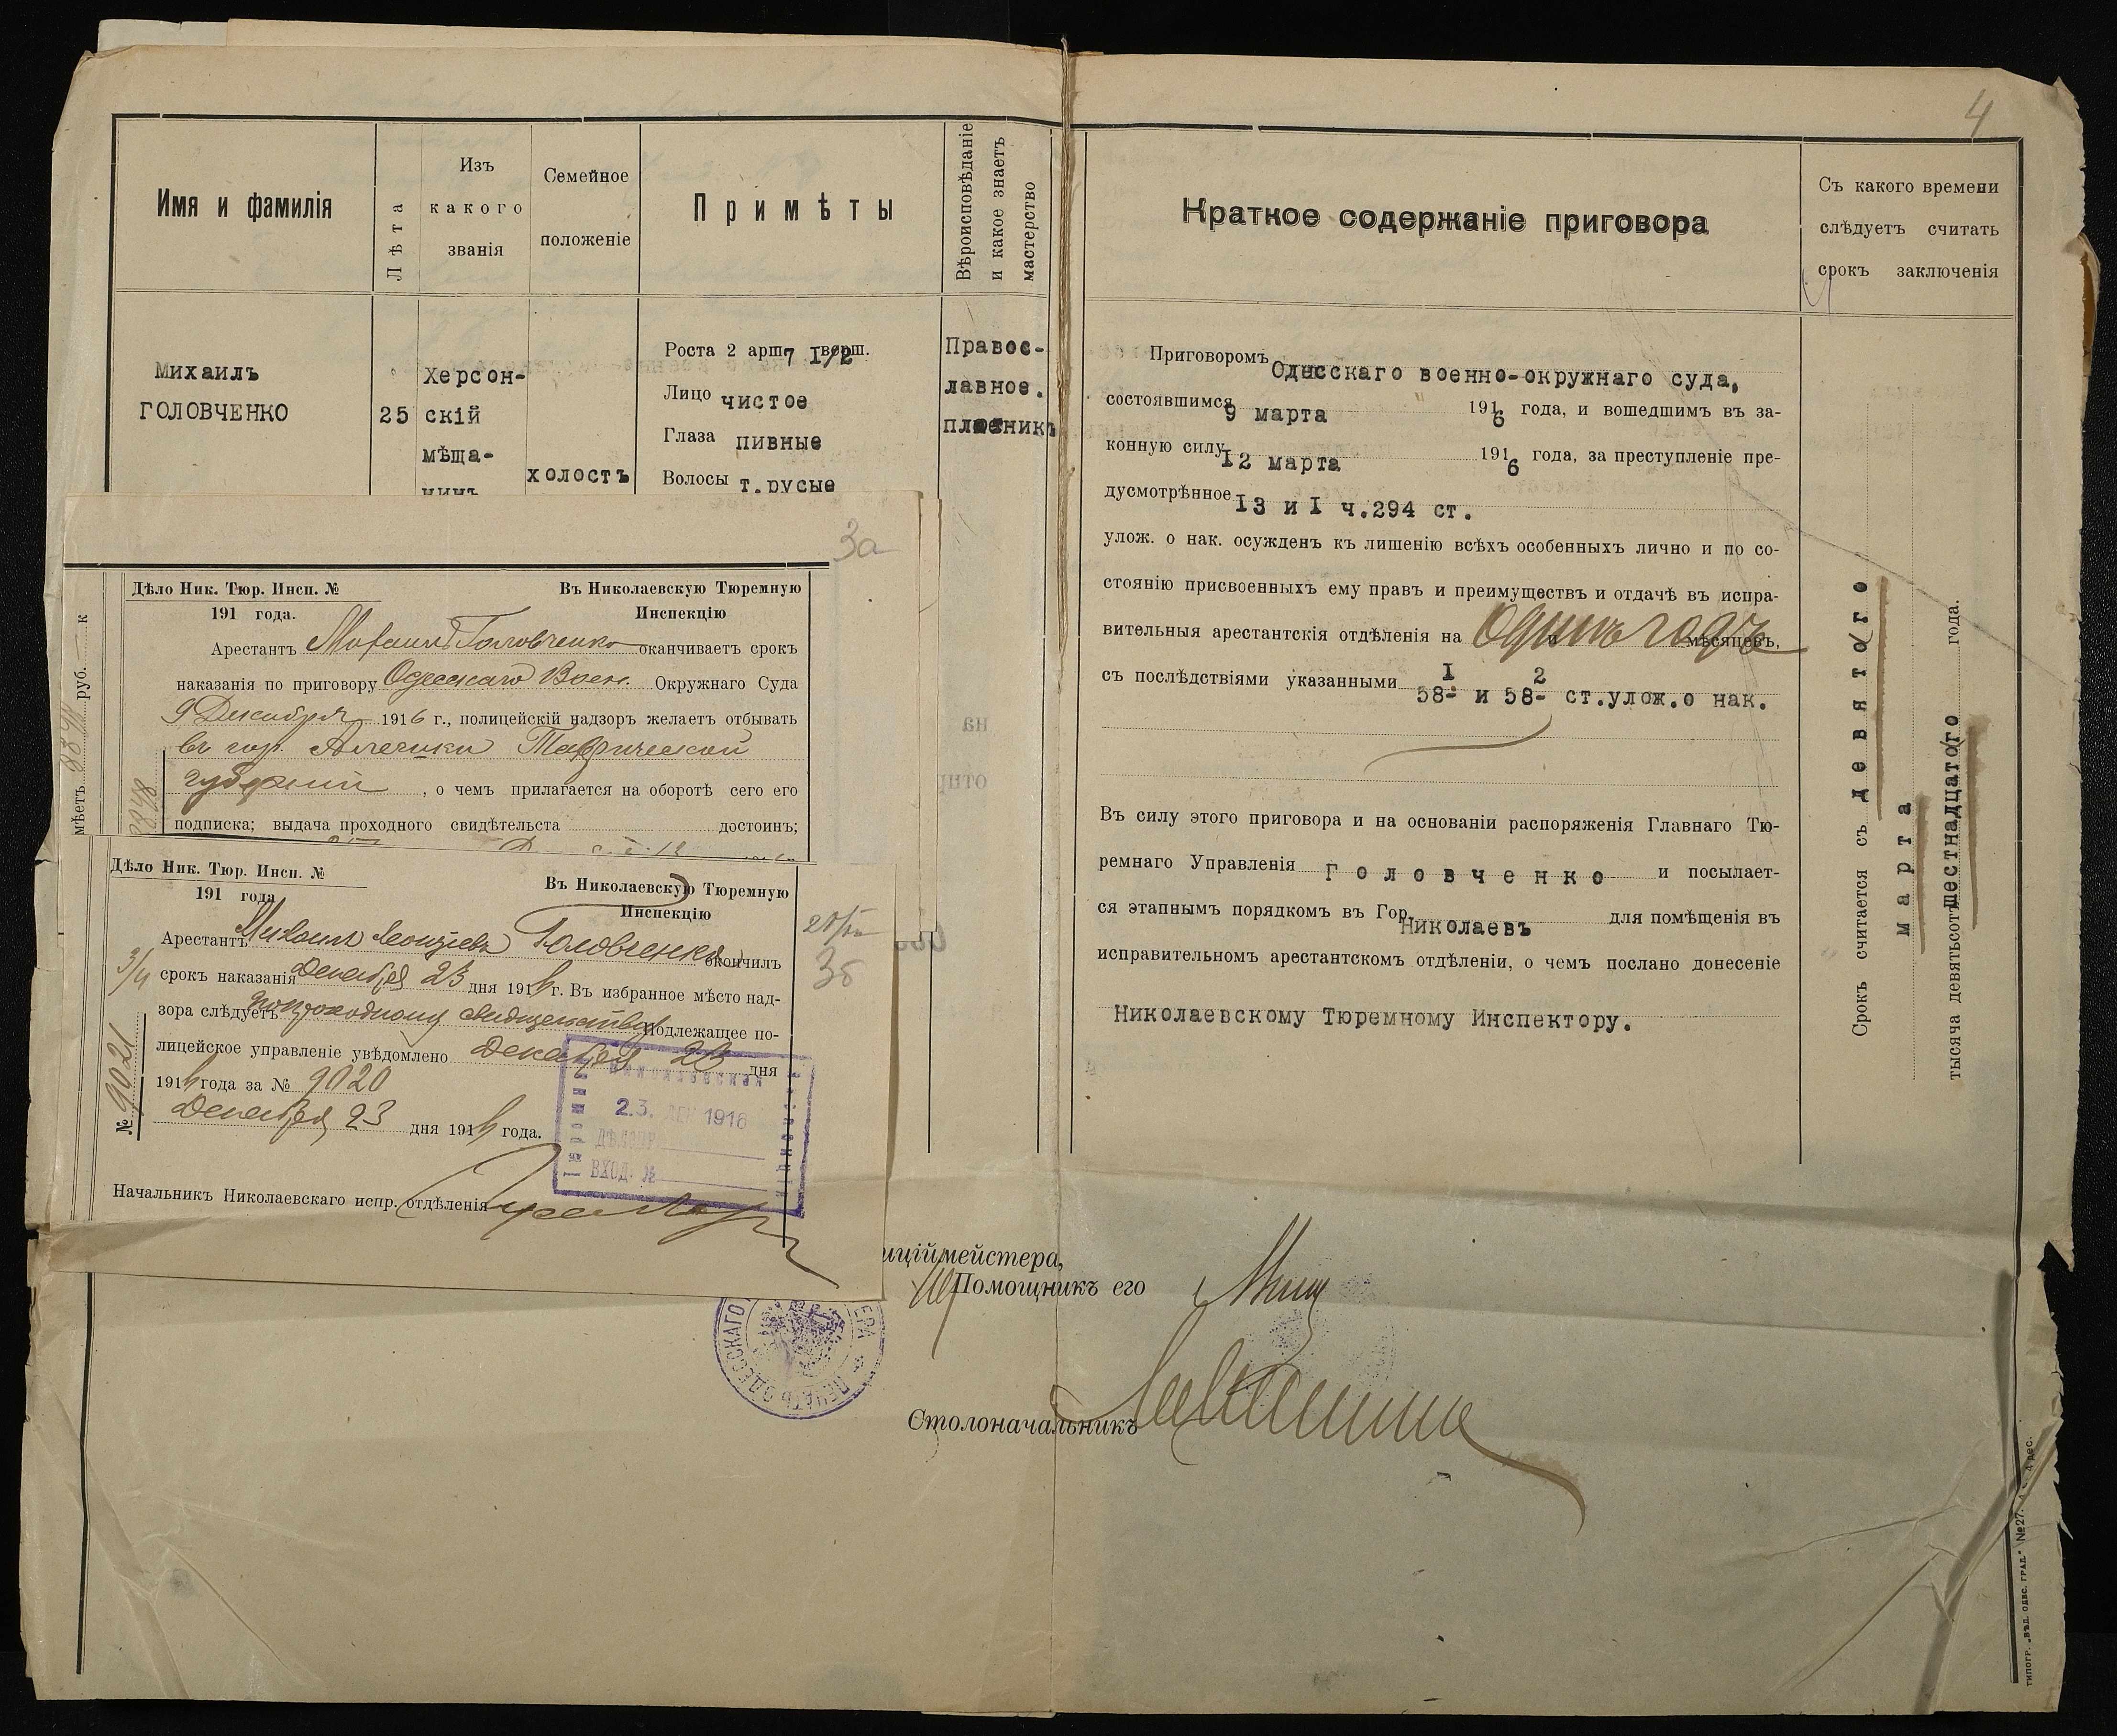 4
Имя и фамилія
Лѣта
Изъ
какого
званія
Семейное
положеніе
Примѣты
Вѣроисповѣданіе
и какое знаетъ
мастерство
Михаилъ
ГОЛОВЧЕНКО
25
Херсон-
скій
мѣща-
нинъ
холостъ
Роста 2 арш. 7 I/2 верш.
Лицо чистое
Глаза пивные
Волосы т.русые
Правос-
лавное.
плотникъ
3а
Дѣло Ник. Тюр. Инсп. №
191 года.
Въ Николаевскую Тюремную
Инспекцію
Арестантъ Михаилъ Головченко оканчиваетъ срокъ
наказанія по приговору Одесскаго Воен. Окружнаго Суда
9 Декабря 1916 г., полицейскій надзоръ желаетъ отбывать
въ гор. Алешки Таврической
губерніи, о чемъ прилагается на оборотѣ сего его
подписка; выдача проходного свидѣтельства достоинъ;
имѣетъ руб. к
Дѣло Ник. Тюр. Инсп. №
191 года
Въ Николаевскую Тюремную
Инспекцію
Арестантъ Михаилъ Головченко окончилъ
срокъ наказанія Декабря 23 дня 1916 г. Въ избранное мѣсто над-
зора слѣдуетъ по проходному свидѣтельству Подлежащее по-
лицейское управленіе увѣдомлено Декабря 23 дня
1916 года за № 9020
Декабря 23 дня 1916 года.
№ 9021
3б
23. ДЕК 1916
ВХОД. №
Начальникъ Николаевскаго испр. отдѣленія
Краткое содержаніе приговора
Приговоромъ Одесскаго военно-окружнаго суда,
состоявшимся 9 марта 1916 года, и вошедшимъ въ за-
конную силу 12 марта 1916 года, за преступленіе пре-
дусмотрѣнное I3 и I ч.294 ст.
улож. о нак. осужденъ къ лишенію всѣхъ особенныхъ лично и по со-
стоянію присвоенныхъ ему правъ и преимуществъ и отдачѣ въ испра-
вительныя арестантскія отдѣленія на Одинъ годъ мѣсяцевъ,
съ послѣдствіями указанными 58-1 и 58-2 ст.улож.о нак.
Въ силу этого приговора и на основаніи распоряженія Главнаго Тю-
ремнаго Управленія Головченко и посылает-
ся этапнымъ порядкомъ въ Гор. Николаевъ для помѣщенія въ
исправительномъ арестантскомъ отдѣленіи, о чемъ послано донесеніе
Николаевскому Тюремному Инспектору.
Съ какого времени
слѣдуетъ считать
срокъ заключенія
Срокъ считается съ девятого
марта
тысяча девятьсотъ шестнадцатого года.
иціймейстера,
Помощникъ его
Столоначальникъ